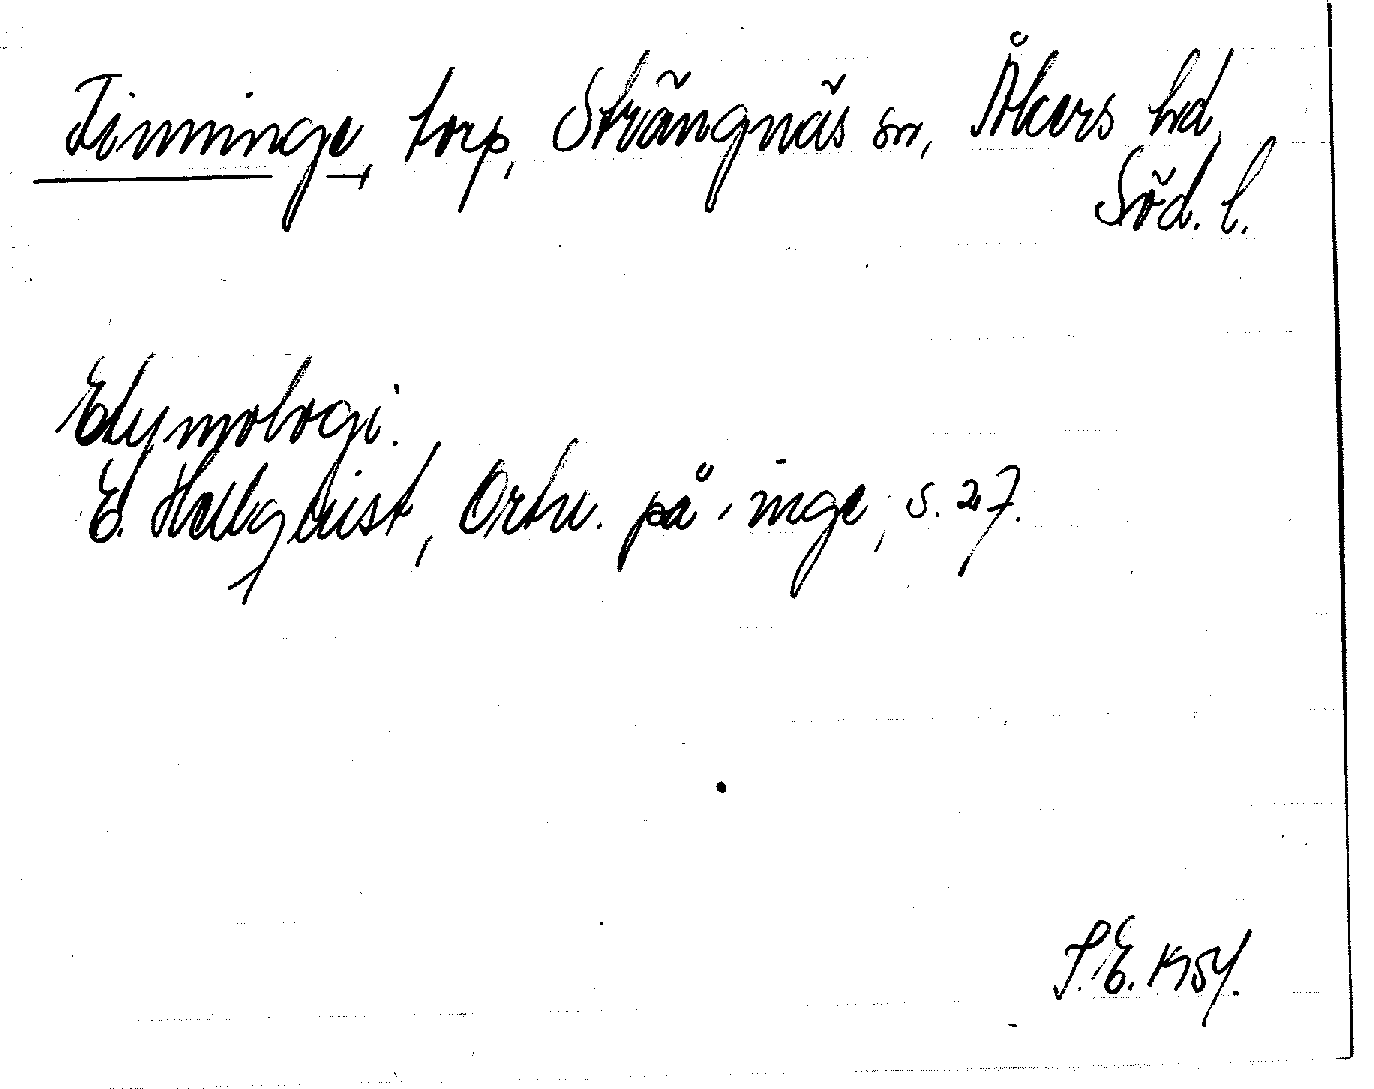 Finninge, torp, Strängnäs sn, Åkers hd,
Söd. l.
Etymologi.
E. Hellquist, Ortn. på -inge, s. 27.
S. E. 1954.